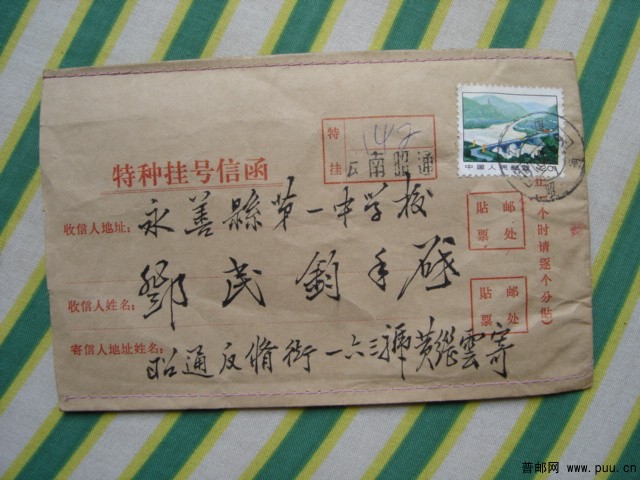 中国人民邮政
20
特 142
挂 云南昭通
特种挂号信函
收信人地址： 永善縣第一中学校
收信人姓名： 鄧民鈞手啟
寄信人地址姓名： 昭通反脩街一六三號黄繼雲寄
貼 邮
票 处
貼 邮
票 处
个时请逐个分贴）
普邮网 www.puu.cn